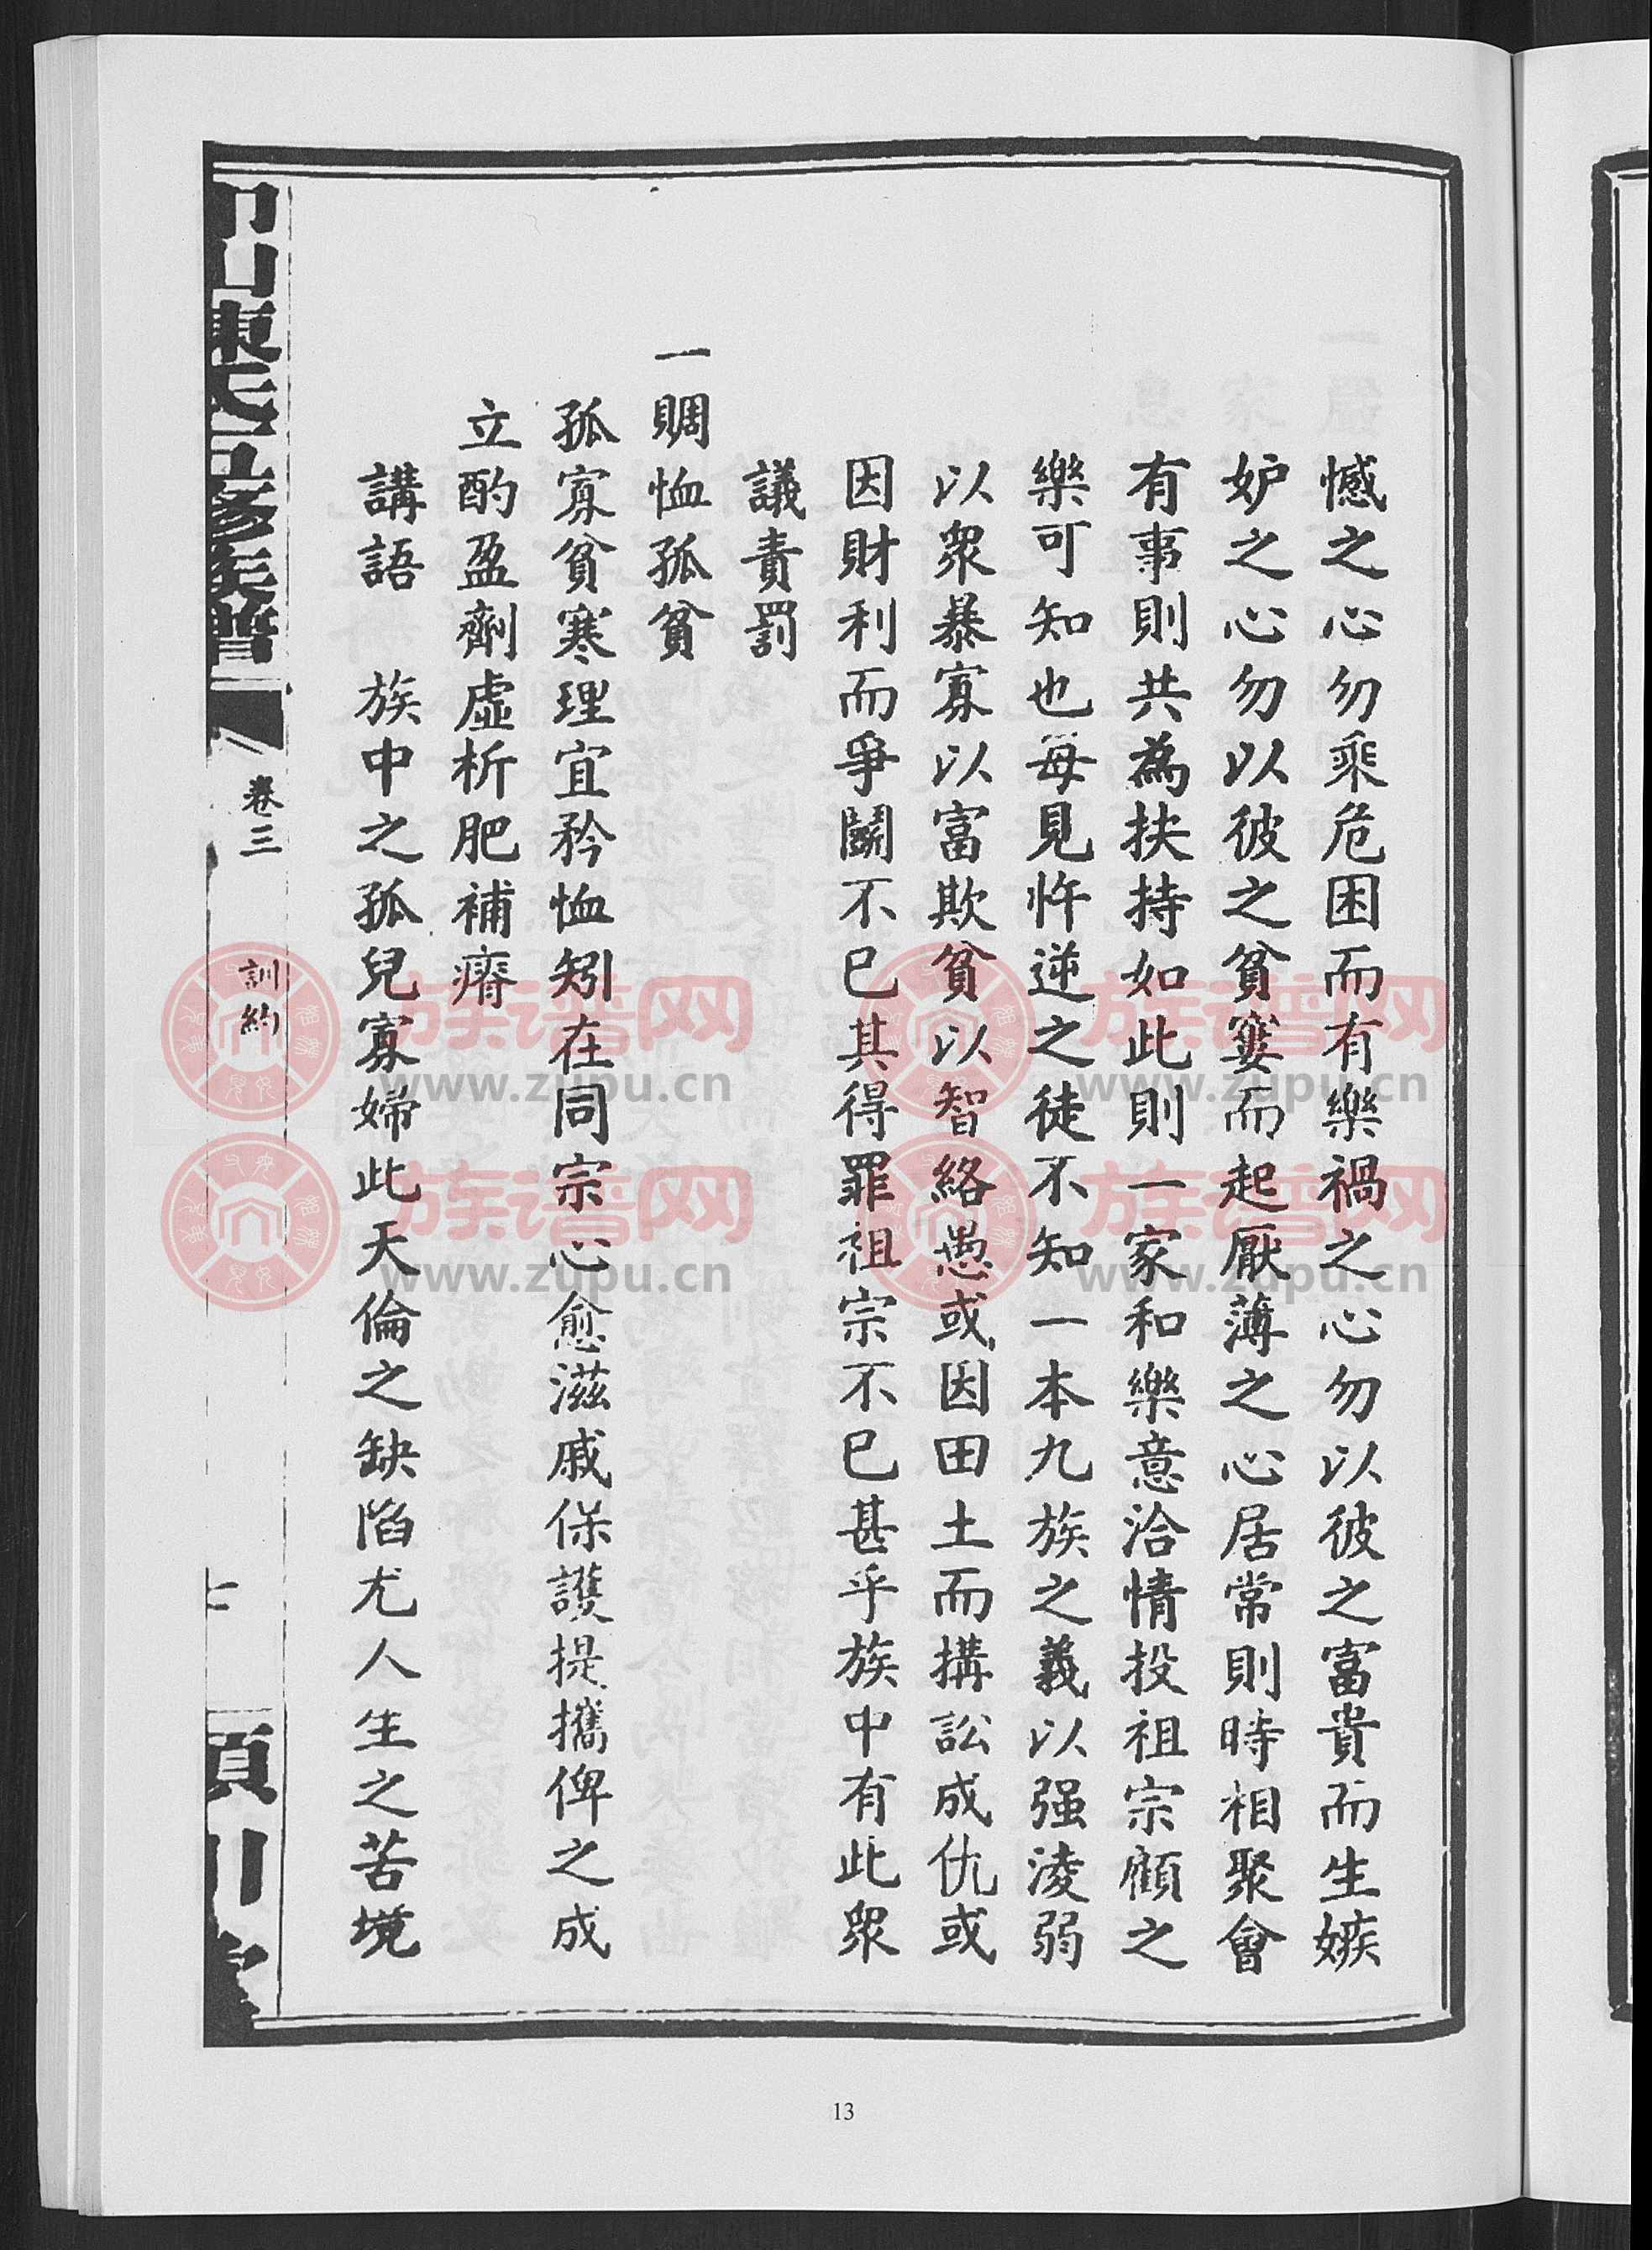 憾之心勿乘危困而有樂禍之心勿以彼之富貴而生嫉
妒之心勿以彼之貧窶而起厭薄之心居常則時相聚會
有事則共為扶持如此則一家和樂意洽情投祖宗顧之
樂可知也每見忤逆之徒不知一本九族之義以强淩弱
以衆暴寡以富欺貧以智絡愚或因田土而搆訟成仇或
因財利而爭鬭不已其得罪祖宗不已甚乎族中有此衆
議責罰
一賙恤孤貧
孤寡貧寒理宜矜恤矧在同宗心愈滋戚保護提攜俾之成
立酌盈劑虛析肥補瘠
講語 族中之孤兒寡婦此天倫之缺陷尤人生之苦境
陳氏五修族譜
卷三
訓約
七
13
族谱网
www.zupu.cn
族谱网
www.zupu.cn
族谱网
www.zupu.cn
族谱网
www.zupu.cn